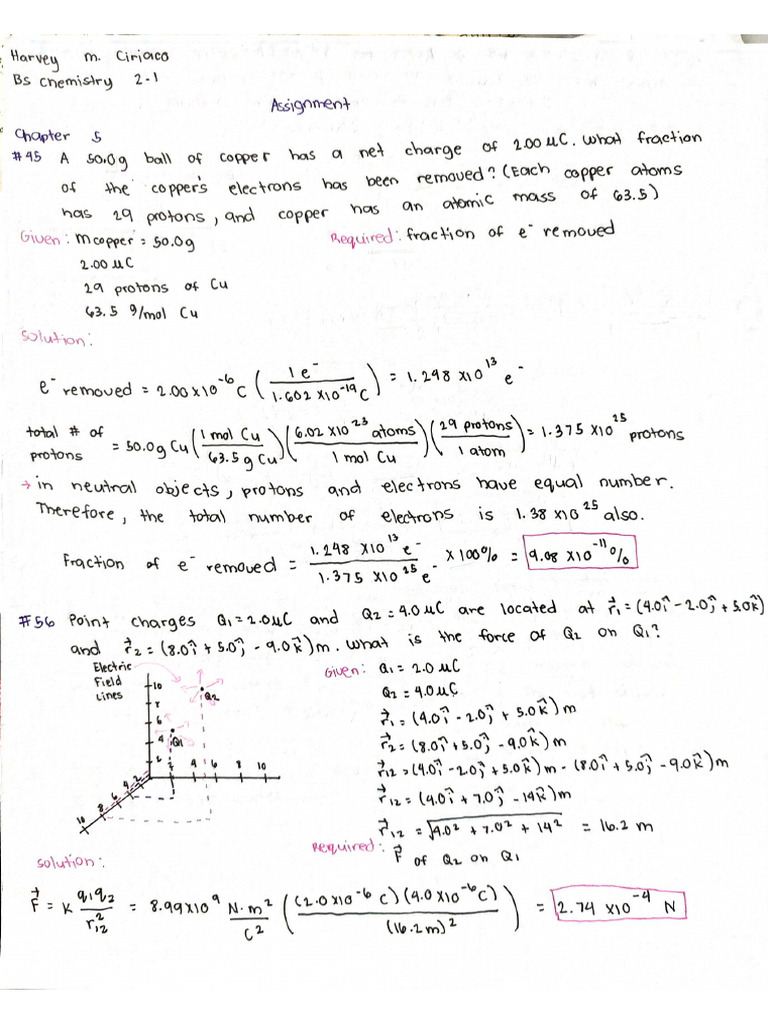 Harvey M. Ciriaco
BS Chemistry 2-1
Assignment
Chapter 5
#45 A 50.0g ball of copper has a net charge of 2.00 μC. What fraction
of the copper's electrons has been removed? (Each copper atoms
has 29 protons, and copper has an atomic mass of 63.5)
Given: m copper = 50.0g Required: fraction of e⁻ removed
2.00 μC
29 protons of Cu
63.5 g/mol Cu
Solution:
e⁻ removed = 2.00 x10⁻⁶ C (1 e⁻ / 1.602 x10⁻¹⁹ C) = 1.248 x10¹³ e⁻
total # of protons = 50.0g Cu (1 mol Cu / 63.5 g Cu) (6.02 x10²³ atoms / 1 mol Cu) (29 protons / 1 atom) = 1.375 x10²⁵ protons
→ in neutral objects, protons and electrons have equal number.
Therefore, the total number of electrons is 1.38 x10²⁵ also.
Fraction of e⁻ removed = 1.248 x10¹³ e⁻ / 1.375 x10²⁵ e⁻ x 100% = 9.08 x10⁻¹¹ %
#56 Point charges Q₁ = 2.0 μC and Q₂ = 4.0 μC are located at r⃗₁ = (4.0î - 2.0ĵ + 5.0k̂)
and r⃗₂ = (8.0î + 5.0ĵ - 9.0k̂) m. What is the force of Q₂ on Q₁?
Electric
Field
Lines
10
8
6
4
2
Q2
Q1
2 4 6 8 10
2
4
6
8
10
Given: Q₁ = 2.0 μC
Q₂ = 4.0 μC
r⃗₁ = (4.0î - 2.0ĵ + 5.0k̂) m
r⃗₂ = (8.0î + 5.0ĵ - 9.0k̂) m
r⃗₁₂ = (4.0î - 2.0ĵ + 5.0k̂) m - (8.0î + 5.0ĵ - 9.0k̂) m
r⃗₁₂ = (4.0î + 7.0ĵ - 14k̂) m
r⃗₁₂ = √4.0² + 7.0² + 14² = 16.2 m
Required: F⃗ of Q₂ on Q₁
Solution:
F⃗ = K q₁q₂ / r₁₂² = 8.99x10⁹ N·m² / C² ((2.0 x10⁻⁶ C)(4.0 x10⁻⁶ C) / (16.2 m)²) = 2.74 x10⁻⁴ N